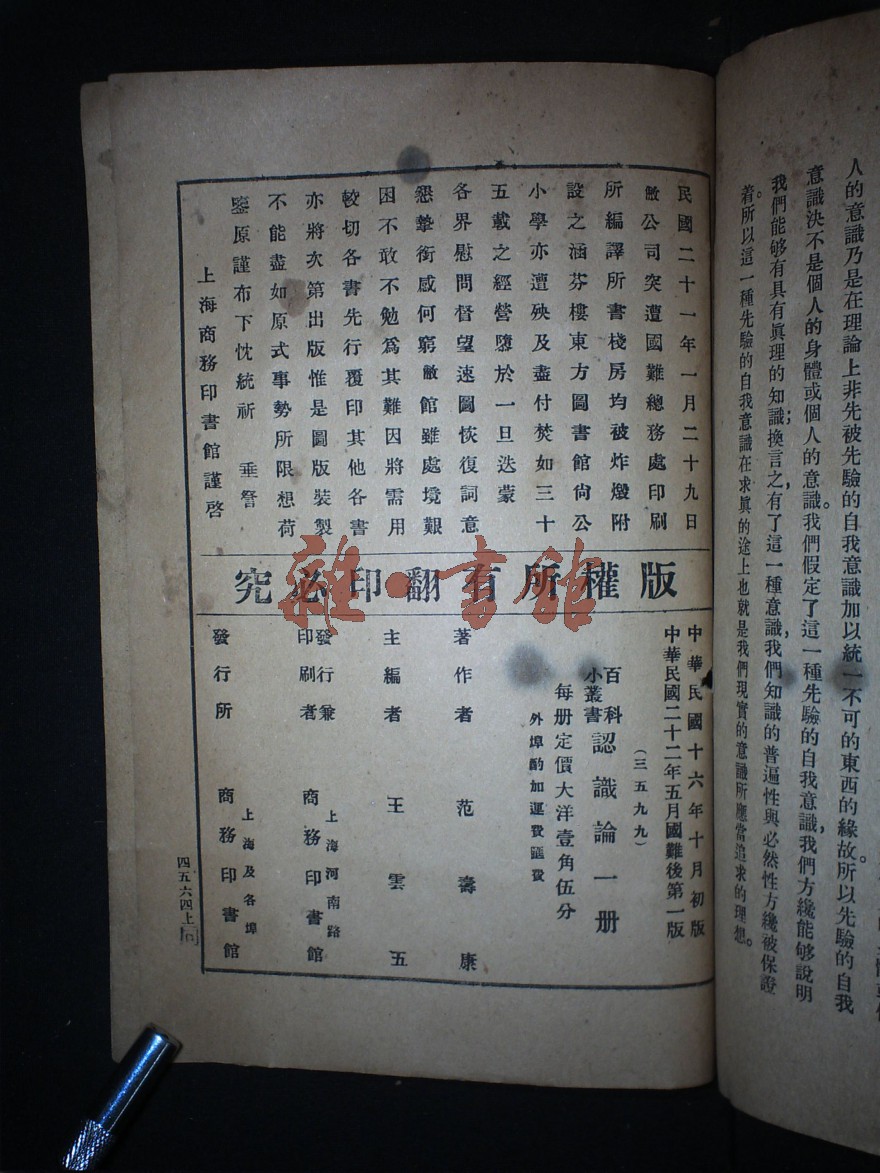 人的意識乃是在理論上非先被先驗的自我意識加以統一不可的東西的緣故。所以先驗的自我
意識決不是個人的身體或個人的意識。我們假定了這一種先驗的自我意識，我們方纔能够說明
我們能够有具有眞理的知識；換言之，有了這一種意識，我們知識的普遍性與必然性方纔被保證
着。所以這一種先驗的自我意識在求眞的途上也就是我們現實的意識所應當追求的理想。
民國二十一年一月二十九日
敝公司突遭國難總務處印刷
所編譯所書棧房均被炸燬附
設之涵芬樓東方圖書館尙公
小學亦遭殃及盡付焚如三十
五載之經營墮於一旦迭蒙
各界慰問督望速圖恢復詞意
懇摯銜感何窮敝館雖處境艱
困不敢不勉爲其難因將需用
較切各書先行覆印其他各書
亦將次第出版惟是圖版裝製
不能盡如原式事勢所限想荷
鑒原謹布下忱統祈 垂詧
上海商務印書館謹啓
版權所有翻印必究
中華民國十六年十月初版
中華民國二十二年五月國難後第一版
(三五九九)
百科小叢書 認識論一册
每册定價大洋壹角伍分
外埠酌加運費匯費
著作者 范壽康
主編者 王雲五
發行兼印刷者 上海河南路 商務印書館
發行所 上海及各埠 商務印書館
四五六四上
雜·書館